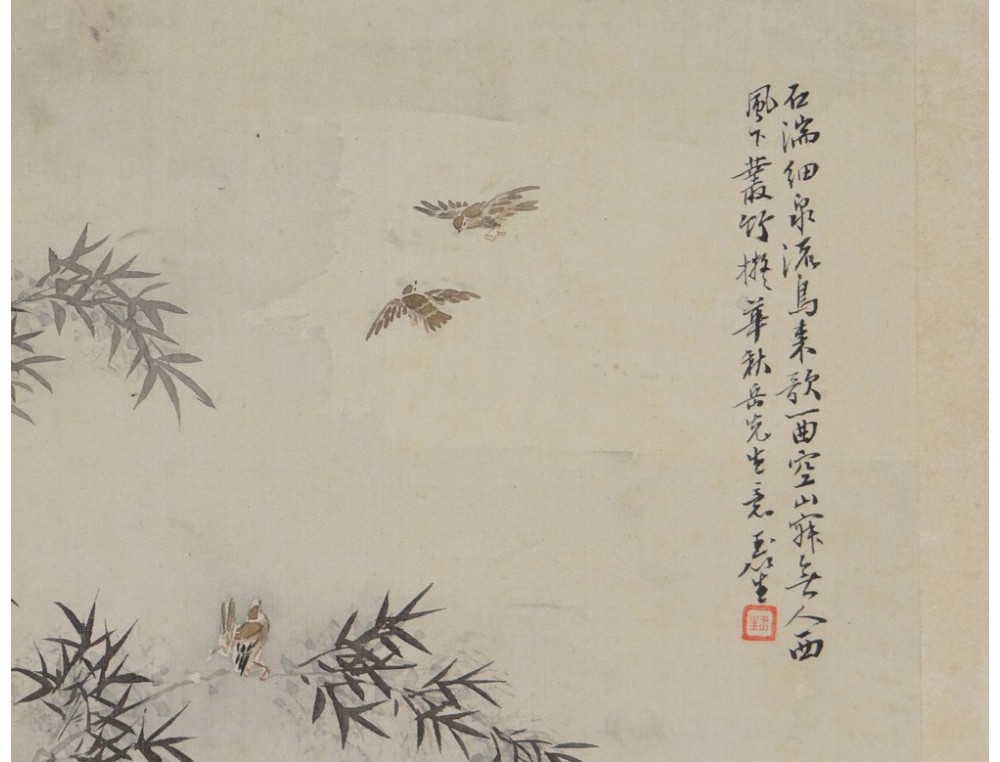 石湍細泉流鳥来歌一曲空山寂無人西
風下叢竹擬華秋岳先生意 生